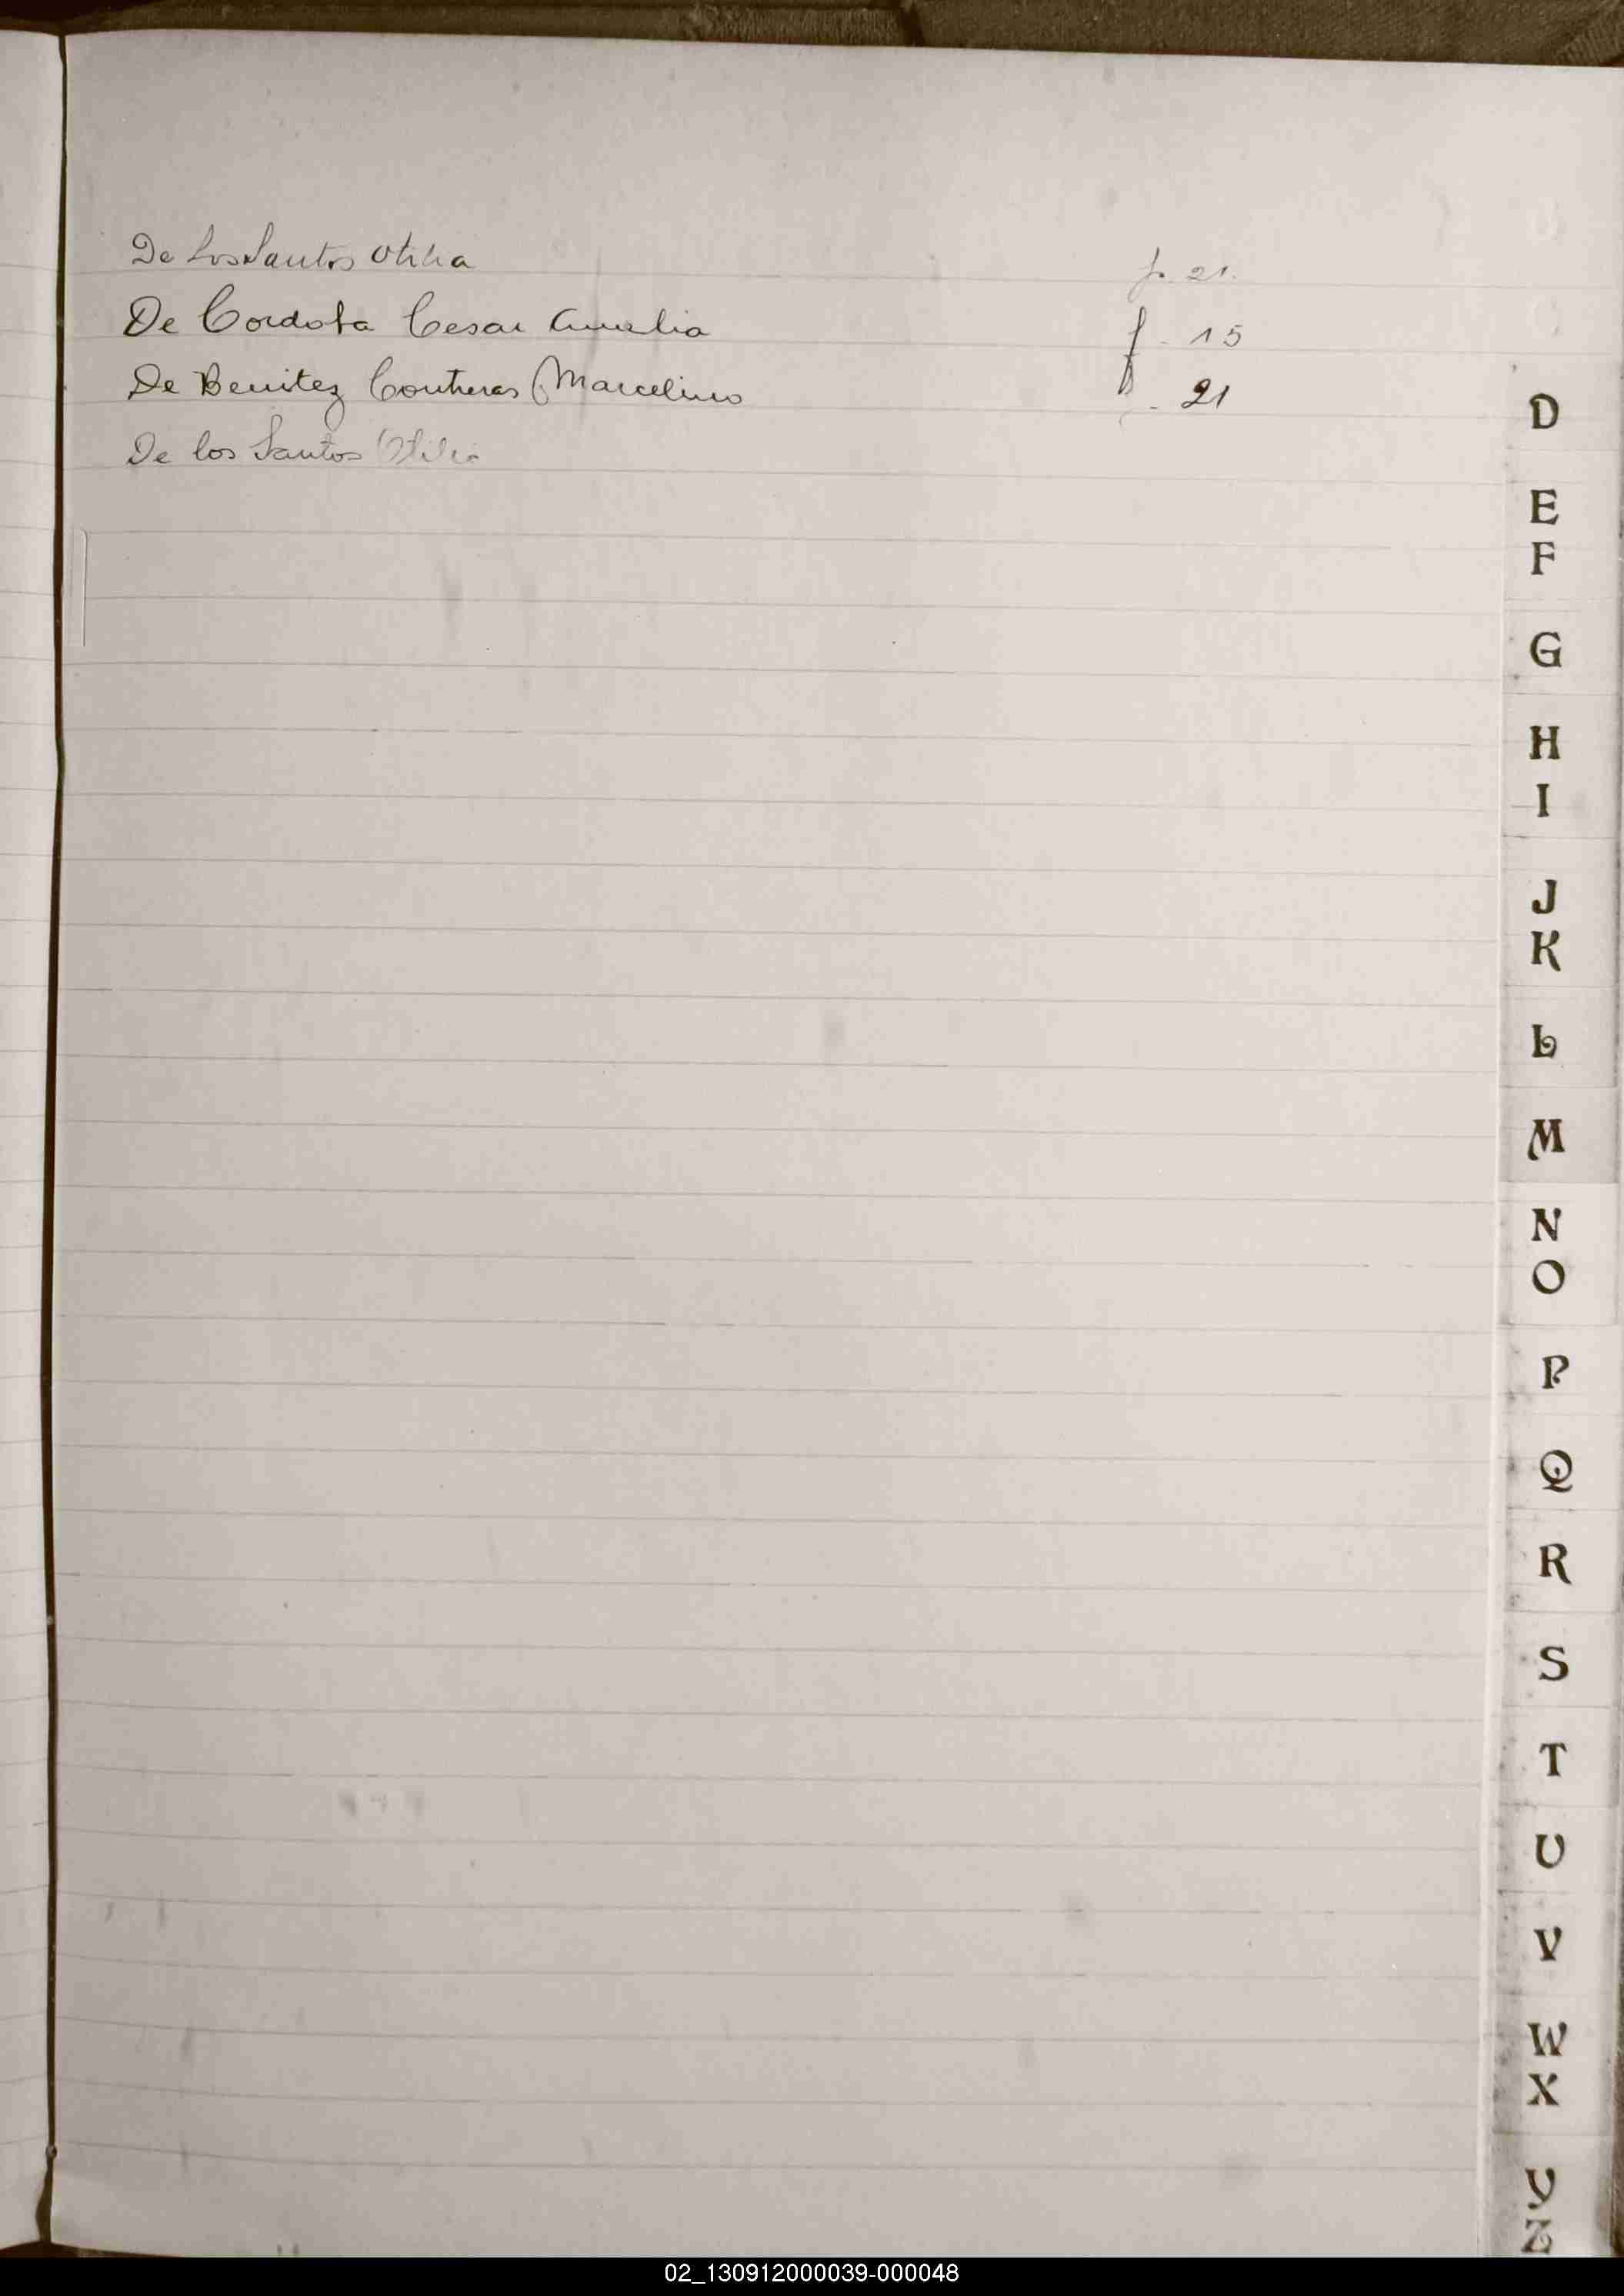 De Los Santos Otilia f. 21.
De Cordoba Cesar Amelia f. 15
De Benitez Contreras Marcelino f. 21
De los Santos Otilia
D
E
F
G
H
I
J
K
L
M
N
O
P
Q
R
S
T
U
V
W
X
Y
Z
02_130912000039-000048